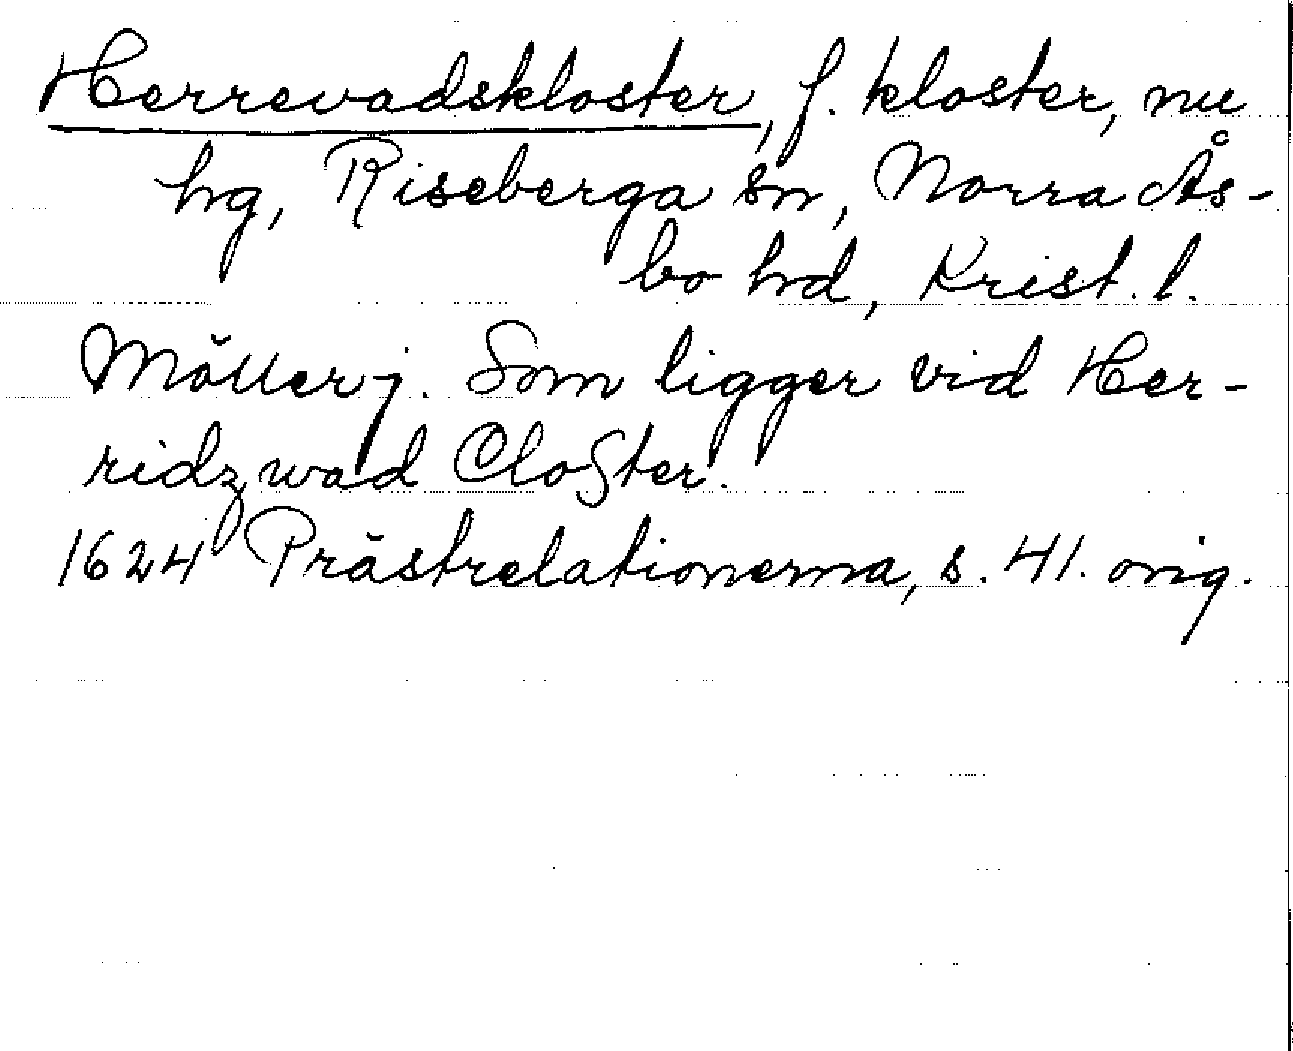 Herrevadskloster, f. kloster, nu
hg, Riseberga sn, Norra Ås-
bo hd, Krist. l.
Möllerj. Som ligger vid Her-
ridzwad Cloßter.
1624 Prästrelationerna, s. 41. orig.